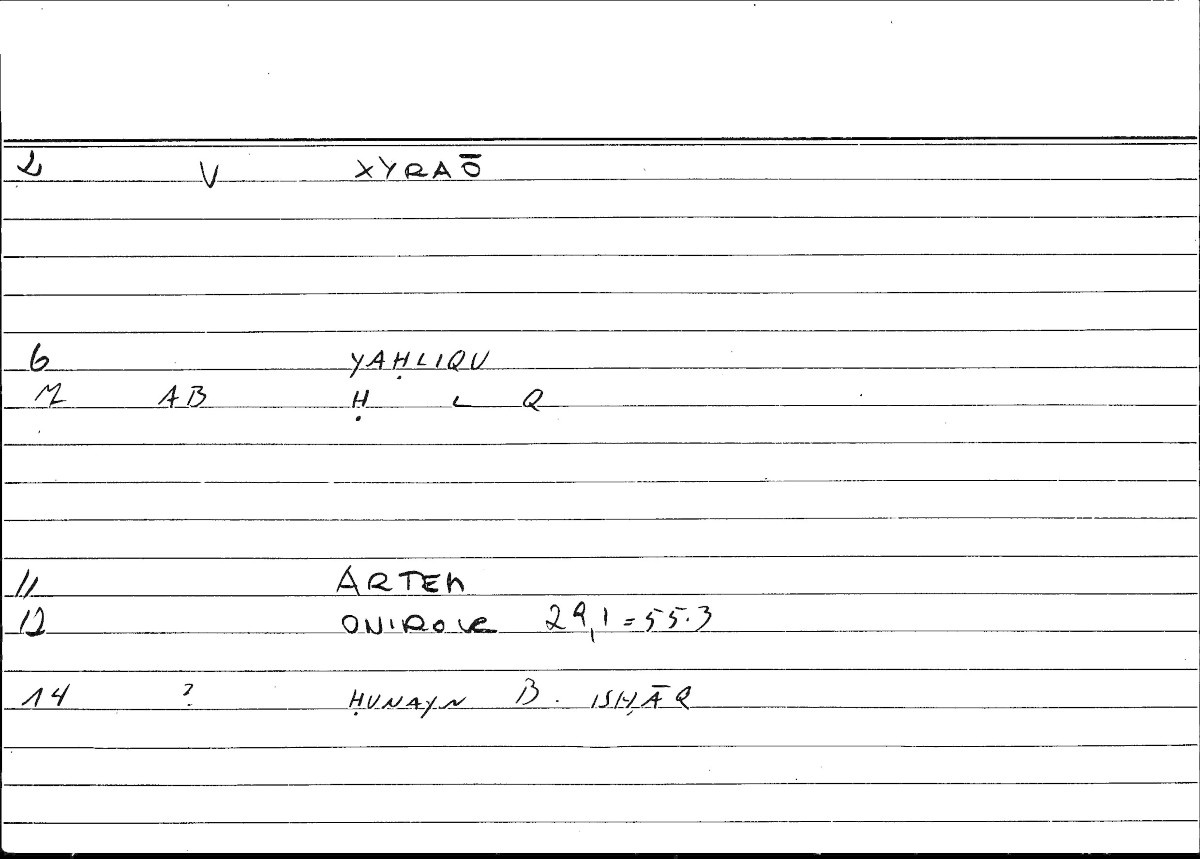 2 V XYRAŌ
6 YAḤLIQU
M AB Ḥ L Q
11 ARTEM
12 ONIROCR 29,1 = 55.3
14 ? ḤUNAYN B. ISḤĀQ